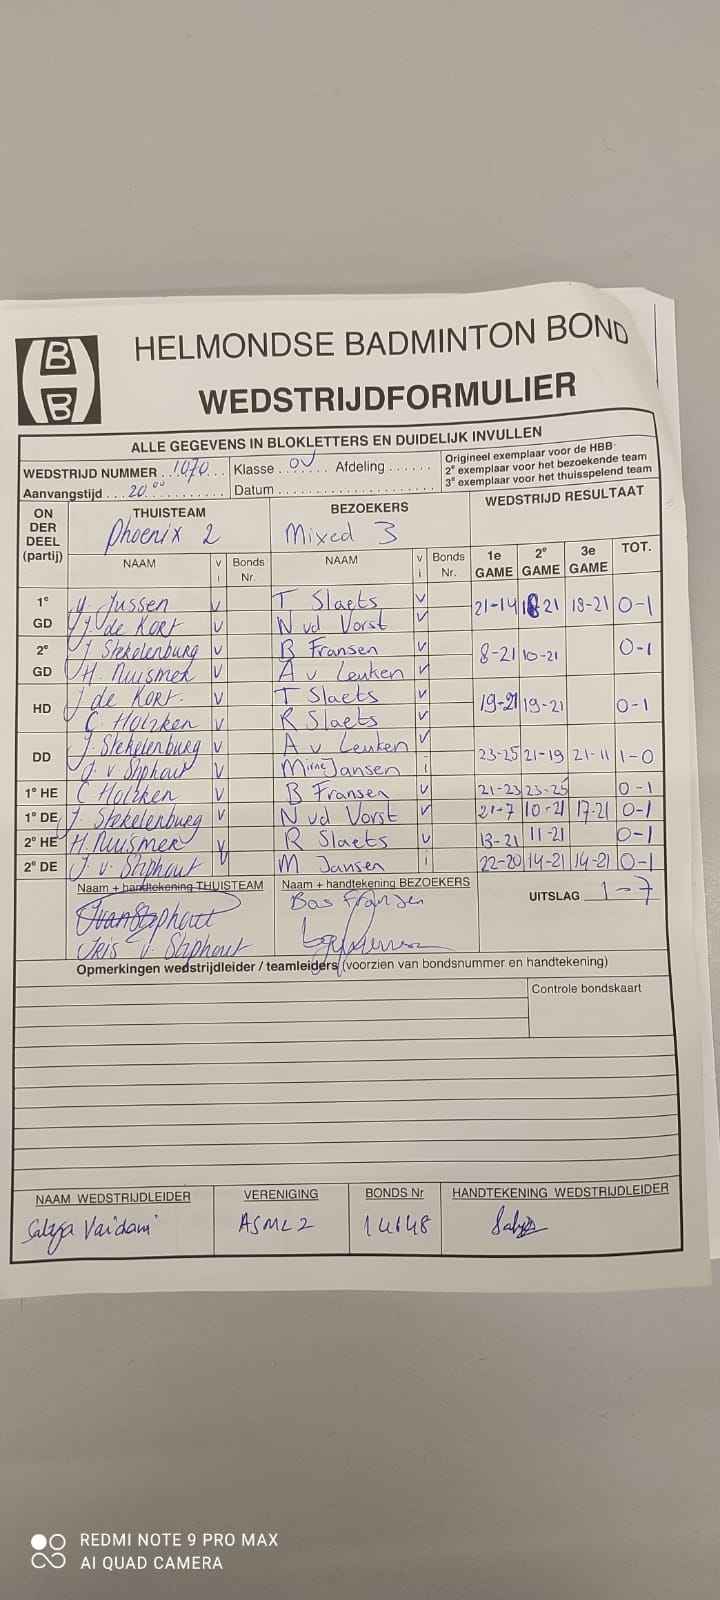 HBB
HELMONDSE BADMINTON BOND
WEDSTRIJDFORMULIER
ALLE GEGEVENS IN BLOKLETTERS EN DUIDELIJK INVULLEN
WEDSTRIJD NUMMER ...1070... Klasse ..OV.. Afdeling ......
Aanvangstijd ...20.00... Datum ......
Origineel exemplaar voor de HBB
2e exemplaar voor het bezoekende team
3e exemplaar voor het thuisspelend team
ON DER DEEL (partij) THUISTEAM BEZOEKERS WEDSTRIJD RESULTAAT
Phoenix 2 Mixed 3
NAAM v i Bonds Nr. NAAM v i Bonds Nr. 1e GAME 2e GAME 3e GAME TOT.
1e GD Y. Jussen v T Slaets v 21-14 18-21 18-21 0-1
J. de Kort v N vd Vorst v
2e GD J. Stekelenburg v B Fransen v 8-21 10-21 0-1
H. Nuismer v A v Leuken v
HD J de Kort. v T Slaets v 19-21 19-21 0-1
C. Holzken v R Slaets v
DD J. Stekelenburg v A v Leuken v 23-25 21-19 21-11 1-0
J. v Stiphout v Mirne Jansen i
1e HE C Holzken v B Fransen v 21-23 23-25 0-1
1e DE J. Stekelenburg v N vd Vorst v 21-7 10-21 17-21 0-1
2e HE H. Nuismer v R Slaets v 13-21 11-21 0-1
2e DE J. v. Stiphout v M Jansen i 22-20 14-21 14-21 0-1
Naam + handtekening THUISTEAM Naam + handtekening BEZOEKERS UITSLAG 1-7
Bas Fransen
Iris v. Stiphout
Opmerkingen wedstrijdleider / teamleiders (voorzien van bondsnummer en handtekening)
Controle bondskaart
NAAM WEDSTRIJDLEIDER VERENIGING BONDS Nr HANDTEKENING WEDSTRIJDLEIDER
Vaidani ASML 2 14648
REDMI NOTE 9 PRO MAX
AI QUAD CAMERA